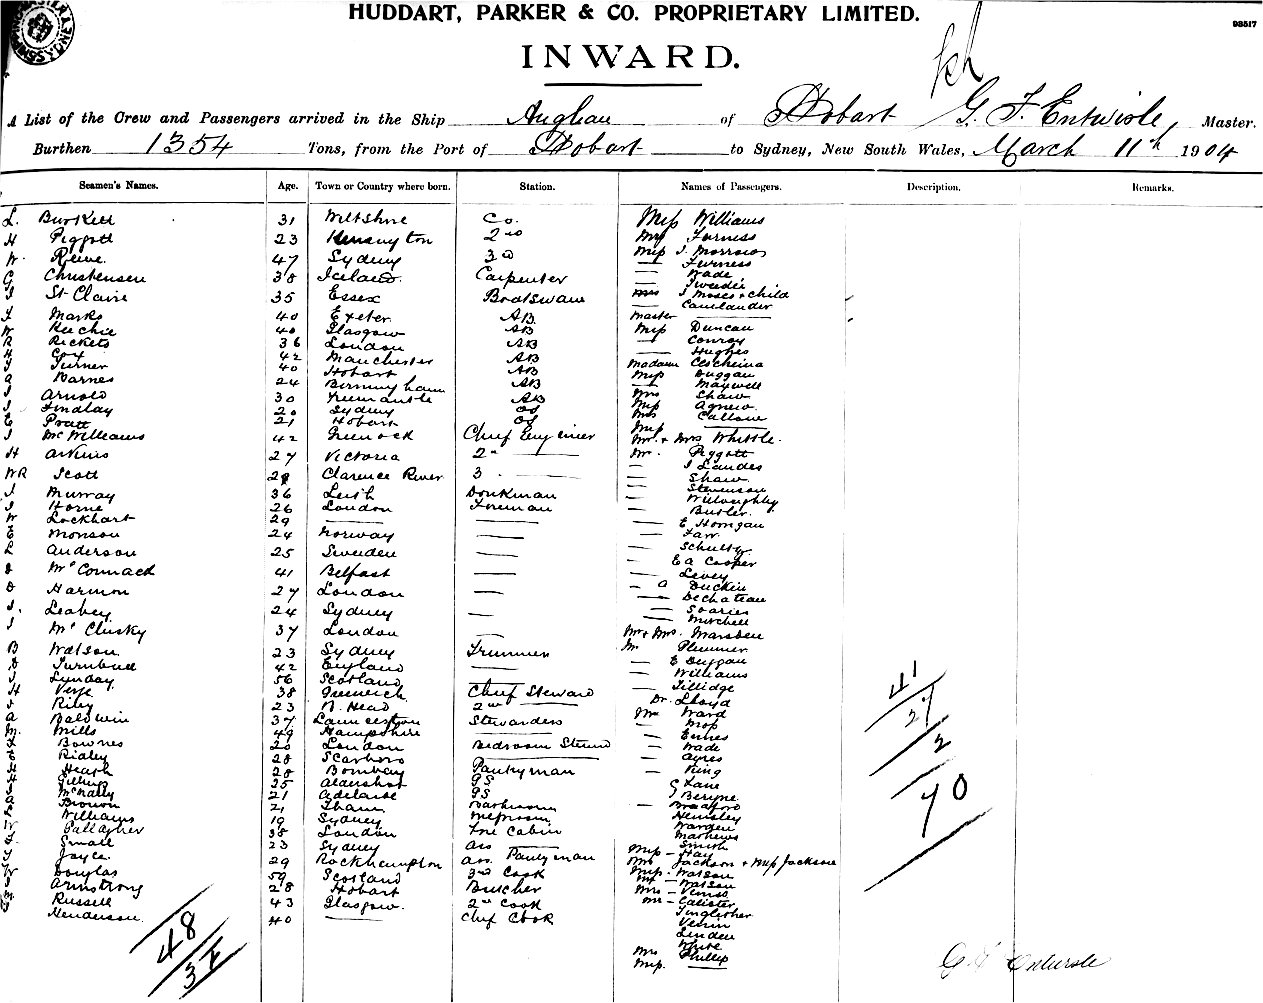 HUDDART, PARKER & CO. PROPRIETARY LIMITED.
93517
INWARD.
A List of the Crew and Passengers arrived in the Ship of Hobart G. F. Entwisle, Master.
Burthen 1354 Tons, from the Port of Hobart to Sydney, New South Wales, March 11th 1904
Seamen's Names. Age. Town or Country where born. Station. Names of Passengers. Description. Remarks.
L. Burkett 31 Wiltshire Co. Miss Williams
H Piggott 23 Kensington 2nd Furness
W. 47 Sydney 3rd Miss J. Morrison
G Christensen 38 Iceland Carpenter — Furness
— Wade
— Tweedie
St Claire 35 Essex Boatswain Mrs J Moses + child
Marks 40 Exeter AB Master —
W Keechie 40 Glasgow AB Miss Duncan
R Rickets 36 London AB — Conroy
H Cox 42 Manchester AB — Hughes
Turner 40 Hobart AB Madam
A Barnes 24 Birmingham AB Miss Duggan
Arnold 30 Freemantle AB — Maxwell
Findlay 20 Sydney OS Mrs Shaw
Pratt 21 Hobart OS Miss Agnew
Mrs Callow
Miss —
McWilliams 42 Greenock Chief Engineer Mr. + Mrs Whistle.
H Atkins 27 Victoria 2nd — Mr. Piggott
— J Landes
WR Scott 28 Clarence River 3 — — Shaw
— Stevenson
J Murray 36 Leith Donkman — Willoughby
Horne 26 London Foreman — Butler
W Lockhart 29 — — — E Horrigan
E Monson 24 Norway — — Farr
L Anderson 25 Sweden — — Schultz
— E A Cooper
McCormack 41 Belfast — — Levey
D Harmon 27 London — — A Duckin
— Dechateau
J. Leahey 24 Sydney — — Soaries
— Mitchell
J McClusky 37 London — Mr + Mrs. Marsden
B Watson 23 Sydney Trimmer Mr Plummer
D Turnbull 42 England — — E Duggan
J Lunday 56 Scotland — — Williams
H Verge 38 Greenwich Chief Steward — Tillidge
Riley 23 N. Head 2nd — Dr. Lloyd
A Baldwin 37 Launceston Stewardess Mr Ward
M. Mills 49 Hampshire — — Moss
Bownes 20 London Bedroom Steward — Ennes
E Ridley 28 Scarboro — — Wade
H Heath 28 Bombay Pantryman — Ayres
H Gilling 25 Aldershot GS — King
McNally 21 Adelaide GS G Lane
A Brown 21 J Beryne
Williams 19 Sydney Messroom — Bradford
W Gallagher 38 London Fore Cabin Hemsley
Small 23 Sydney Ass — Warden
Mathews
Smith
Miss — Hay
Joyce 29 Rockhampton Ass. Pantryman Mrs Jackson + Miss Jackson
W Douglas 59 Scotland 3rd Cook Miss. Watson
— Watson
Armstrong 28 Hobart Butcher Mrs — Veniss
M Russell 43 Glasgow. 2nd Cook Mr — Calister
Henderson. 40 — Chief Cook
Venin
Linden
White
Mrs Phillip
Miss. —
48
37
41
27
2
70
G F Entwisle